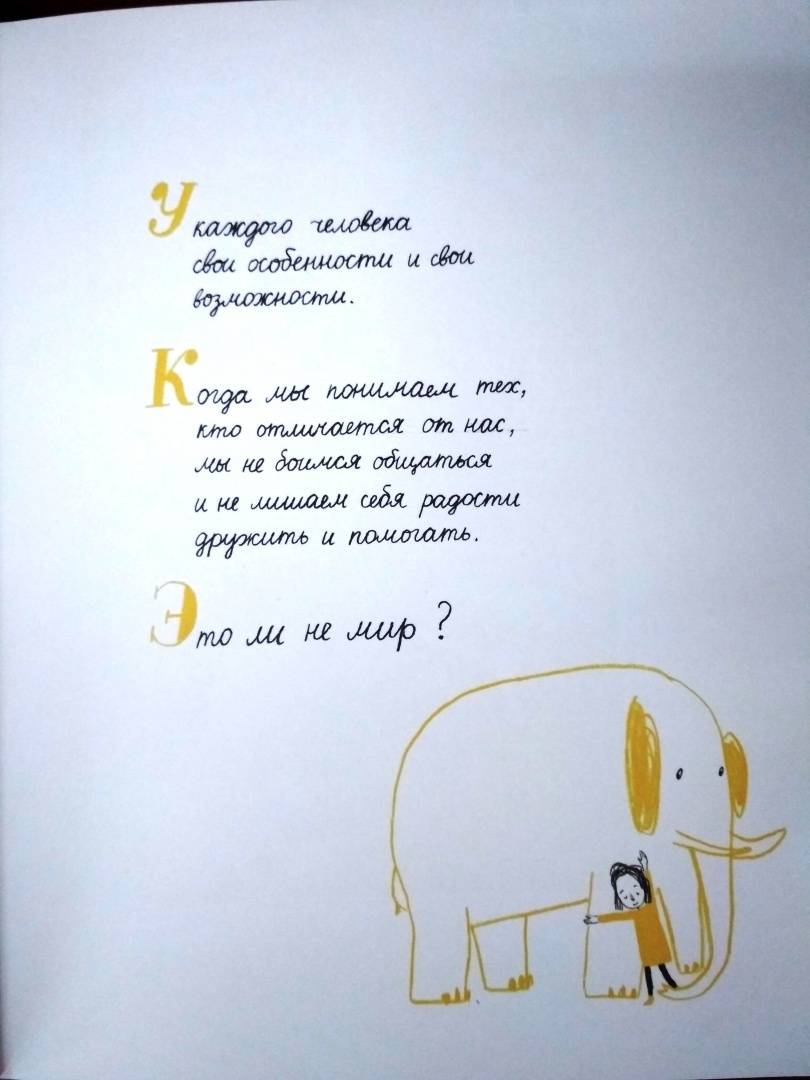 У каждого человека
свои особенности и свои
возможности.
Когда мы понимаем тех,
кто отличается от нас,
мы не боимся общаться
и не лишаем себя радости
дружить и помогать.
Это ли не мир?